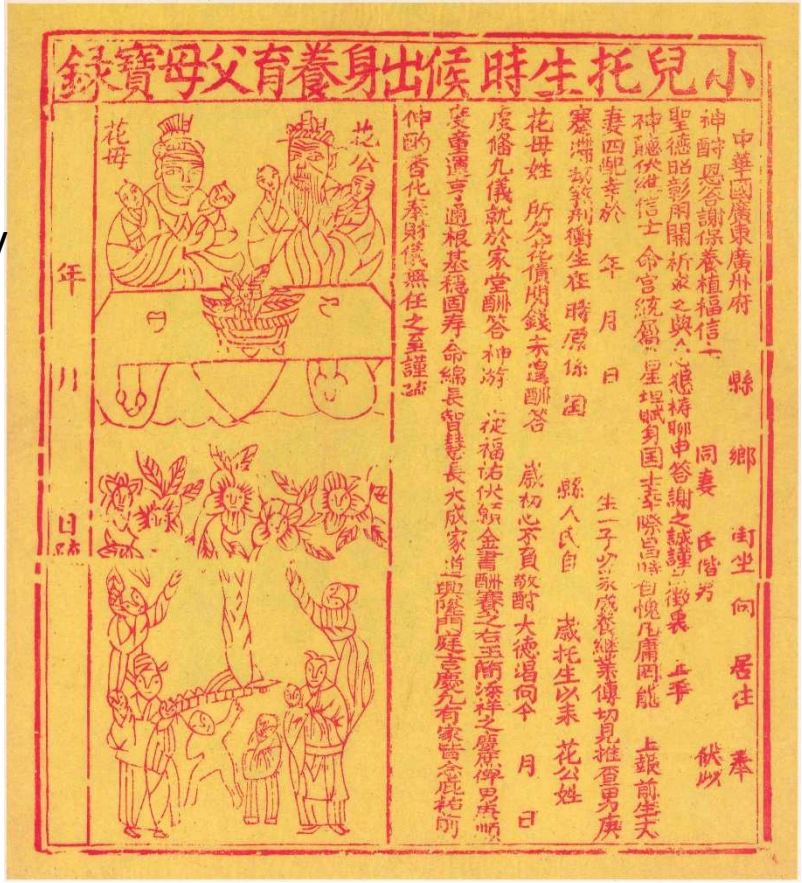 小兒托生時候出身養育父母寶錄
中華國廣東廣州府 縣 鄉 街坐 向 居住 奉
神酧恩答謝保養植福信士 同妻 氏偕男 伏以
聖德昭彰開關祈求之與人心慇禱聊申答謝之誠謹
神聽伏維信士 命宮統屬 星 賦身国士幸際昌時自愧凡庸罔能 上報前生夫
妻四配幸於 年 月 日 生一子 承成養継業傳切見推查男庚
蹇滯 刑衝生在 時原係 国 縣人氏自 歲托生以来 花公姓
花母姓 所欠花債関錢未遑酬答 歲初心不負敬酧 大德涓向今 月 日
虔俻九儀就於家堂酬答 神游 從福祐伏願金書酬賽之右玉简添祥之慶庶俾男庚順
童運亨通根基穩固寿命綿長智慧長大成家道興隆門庭吉慶凢有家皆念庇祐前
伸酌香化奉財儀無任之至謹疏
花公
花母
年 月 日疏
y